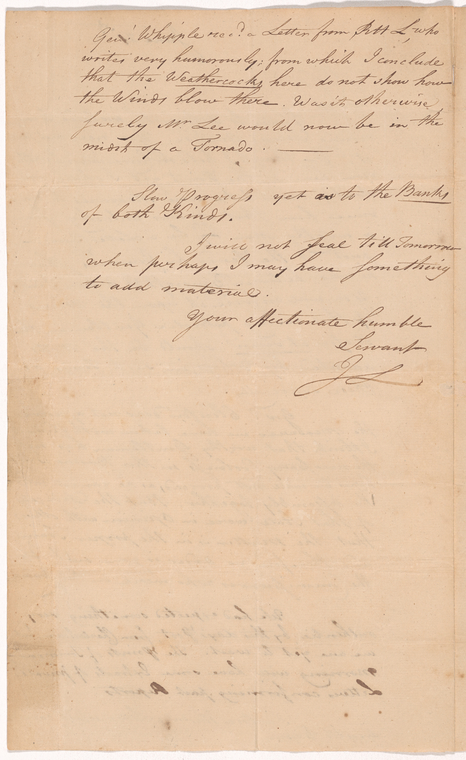 Genl Whipple recd. a Letter from RHL, who
writes very humorously; from which I conclude
that the Weathercocks here do not show how
the Winds blow there. Was it otherwise
surely Mr Lee would now be in the
midst of a Tornado. —
Slow Progress yet as to the Banks
of both Kinds.
I will not seal till Tomorrow
when perhaps I may have something
to add material.
Your affectionate humble
Servant
JL